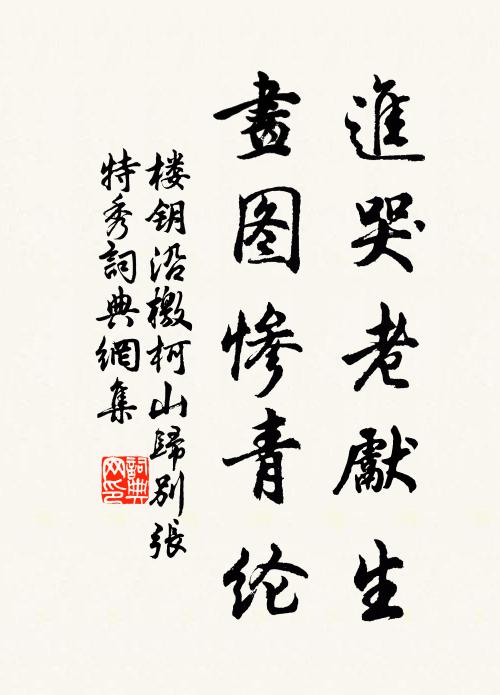 進哭老獻生
畫图慘青纶
楼钥沿檄柯山歸别張
特秀詞典網集
詞典网印